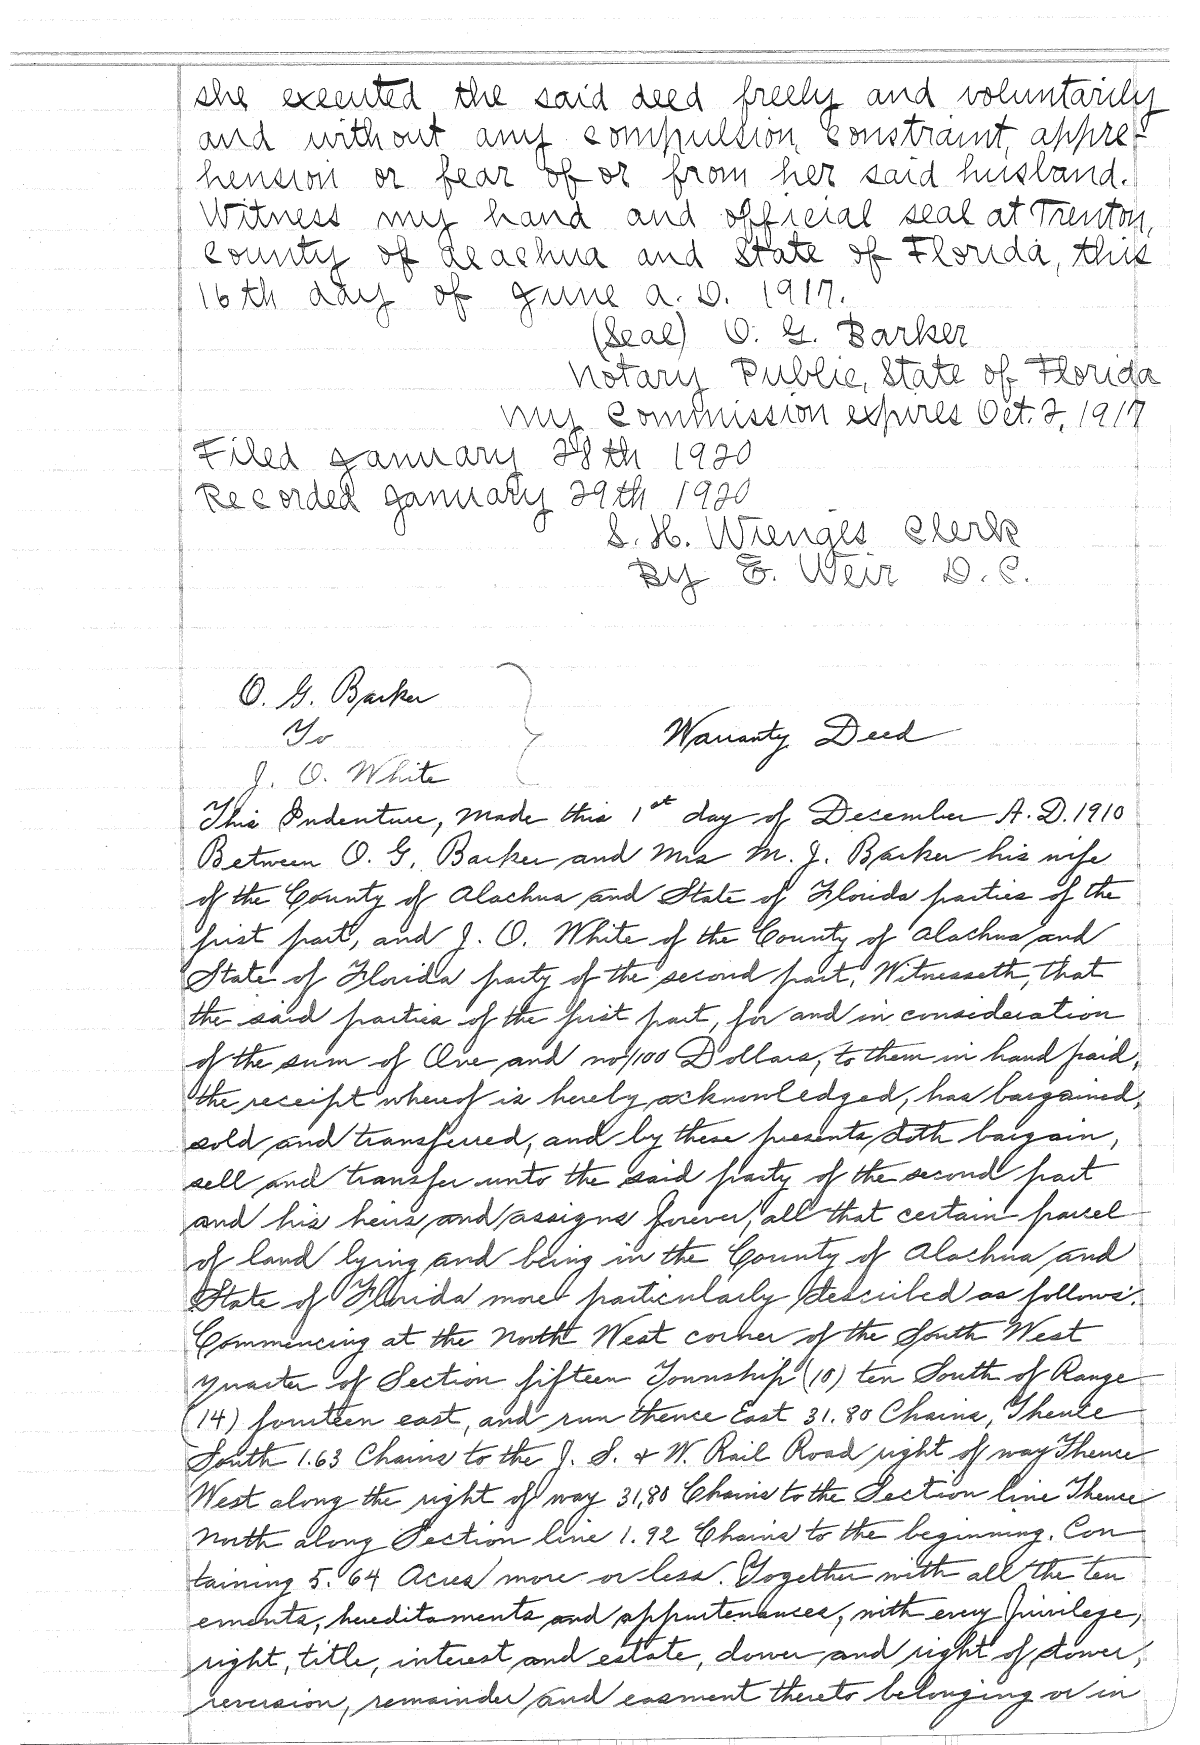 she executed the said deed freely and voluntarily
and without any compulsion, constraint, appre-
hension or fear of or from her said husband.
Witness my hand and official seal at Trenton,
County of Alachua and State of Florida, this
16th day of June A. D. 1917.
(Seal) O. G. Barker
Notary Public, State of Florida
My Commission expires Oct. 2, 1917
Filed January 28th 1920
Recorded January 29th 1920
S. H. Wienges Clerk
By E. Weir D. C.
O. G. Barker
To
J. O. White
Warranty Deed
This Indenture, Made this 1st day of December A. D. 1910
Between O. G. Barker and Mrs M. J. Barker his wife
of the County of Alachua and State of Florida parties of the
first part, and J. O. White of the County of Alachua and
State of Florida party of the second part, Witnesseth, that
the said parties of the first part, for and in consideration
of the sum of One and no/100 Dollars, to them in hand paid,
the receipt whereof is hereby acknowledged, has bargained,
sold and transferred, and by these presents doth bargain,
sell and transfer unto the said party of the second part
and his heirs and assigns forever, all that certain parcel
of land lying and being in the County of Alachua and
State of Florida more particularly described as follows:
Commencing at the North West corner of the South West
quarter of Section fifteen Township (10) ten South of Range
(14) fourteen east, and run thence East 31.80 Chains, Thence
South 1.63 Chains to the J. S. & W. Rail Road right of way Thence
West along the right of way 31,80 Chains to the Section line Thence
North along Section line 1.92 Chains to the beginning. Con
taining 5.64 Acres more or less. Together with all the ten
ements, hereditaments and appurtenances, with every privilege,
right, title, interest and estate, dower and right of dower,
reversion, remainder and easment thereto belonging or in